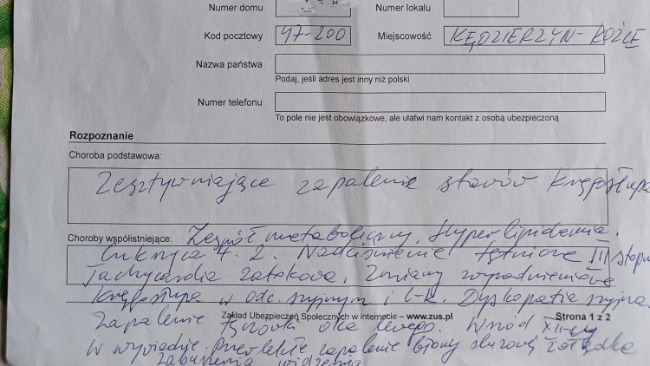 Numer domu
Numer lokalu
Kod pocztowy 47-200 Miejscowość KĘDZIERZYN-KOŹLE
Nazwa państwa
Podaj, jeśli adres jest inny niż polski
Numer telefonu
To pole nie jest obowiązkowe, ale ułatwi nam kontakt z osobą ubezpieczoną
Rozpoznanie
Choroba podstawowa:
Zesztywniające zapalenie stawów kręgosłupa
Choroby współistniejące: Zespół metaboliczny. Hyperlipidemia.
Cukrzyca t. 2. Nadciśnienie tętnicze III stopn
Tachycardia zatokowa. Zmiany zwyrodnieniowe
kręgosłupa w odc. szyjnym i L-K. Dyskopatia szyjna.
Zakład Ubezpieczeń Społecznych w internecie – www.zus.pl Strona 1 z 2
Zapalenie tęczówki oka lewego. Wrzód XII-cy
W wywiadzie. przewlekłe zapalenie błony śluzowej żołądka
Zaburzenia widzenia